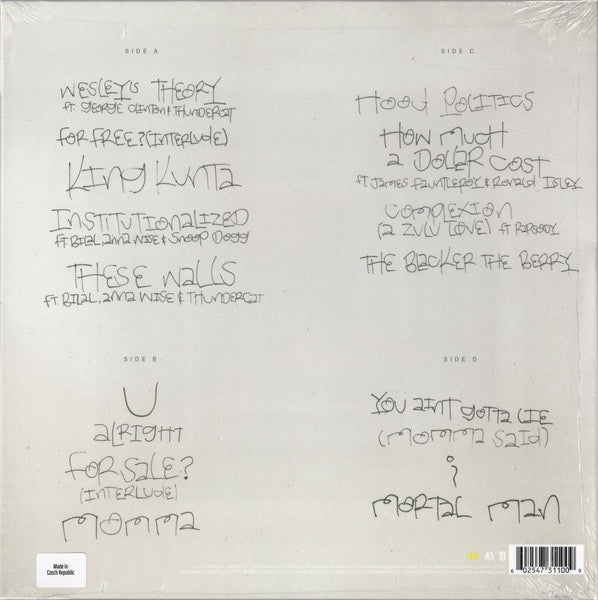 SIDE A
WESLEY'S THEORY
ft. GEORGE CLINTON & THUNDERCAT
FOR FREE? (INTERLUDE)
King Kunta
INSTITUTIONALIZED
ft BILAL, anna WISE & Snoop Dogg
THESE WaLLS
fT. BILAL, anna WISE & THUNDERCaT
SIDE B
U
aLRIGHT
FOR SALE?
(INTERLUDE)
momma
SIDE C
Hood POLITICS
How much
a DOLLaR COST
ft. James FaunTLEROY & RonaLD ISLEY
compLEXION
(a ZULU LOVE) ft RapSODY
THE BLaCKER THE BERRY
SIDE D
YOU ainT goTTa LIE
(momma SaiD)
i
moRTaL man
Made in
Czech Republic
6 02547 31100 9